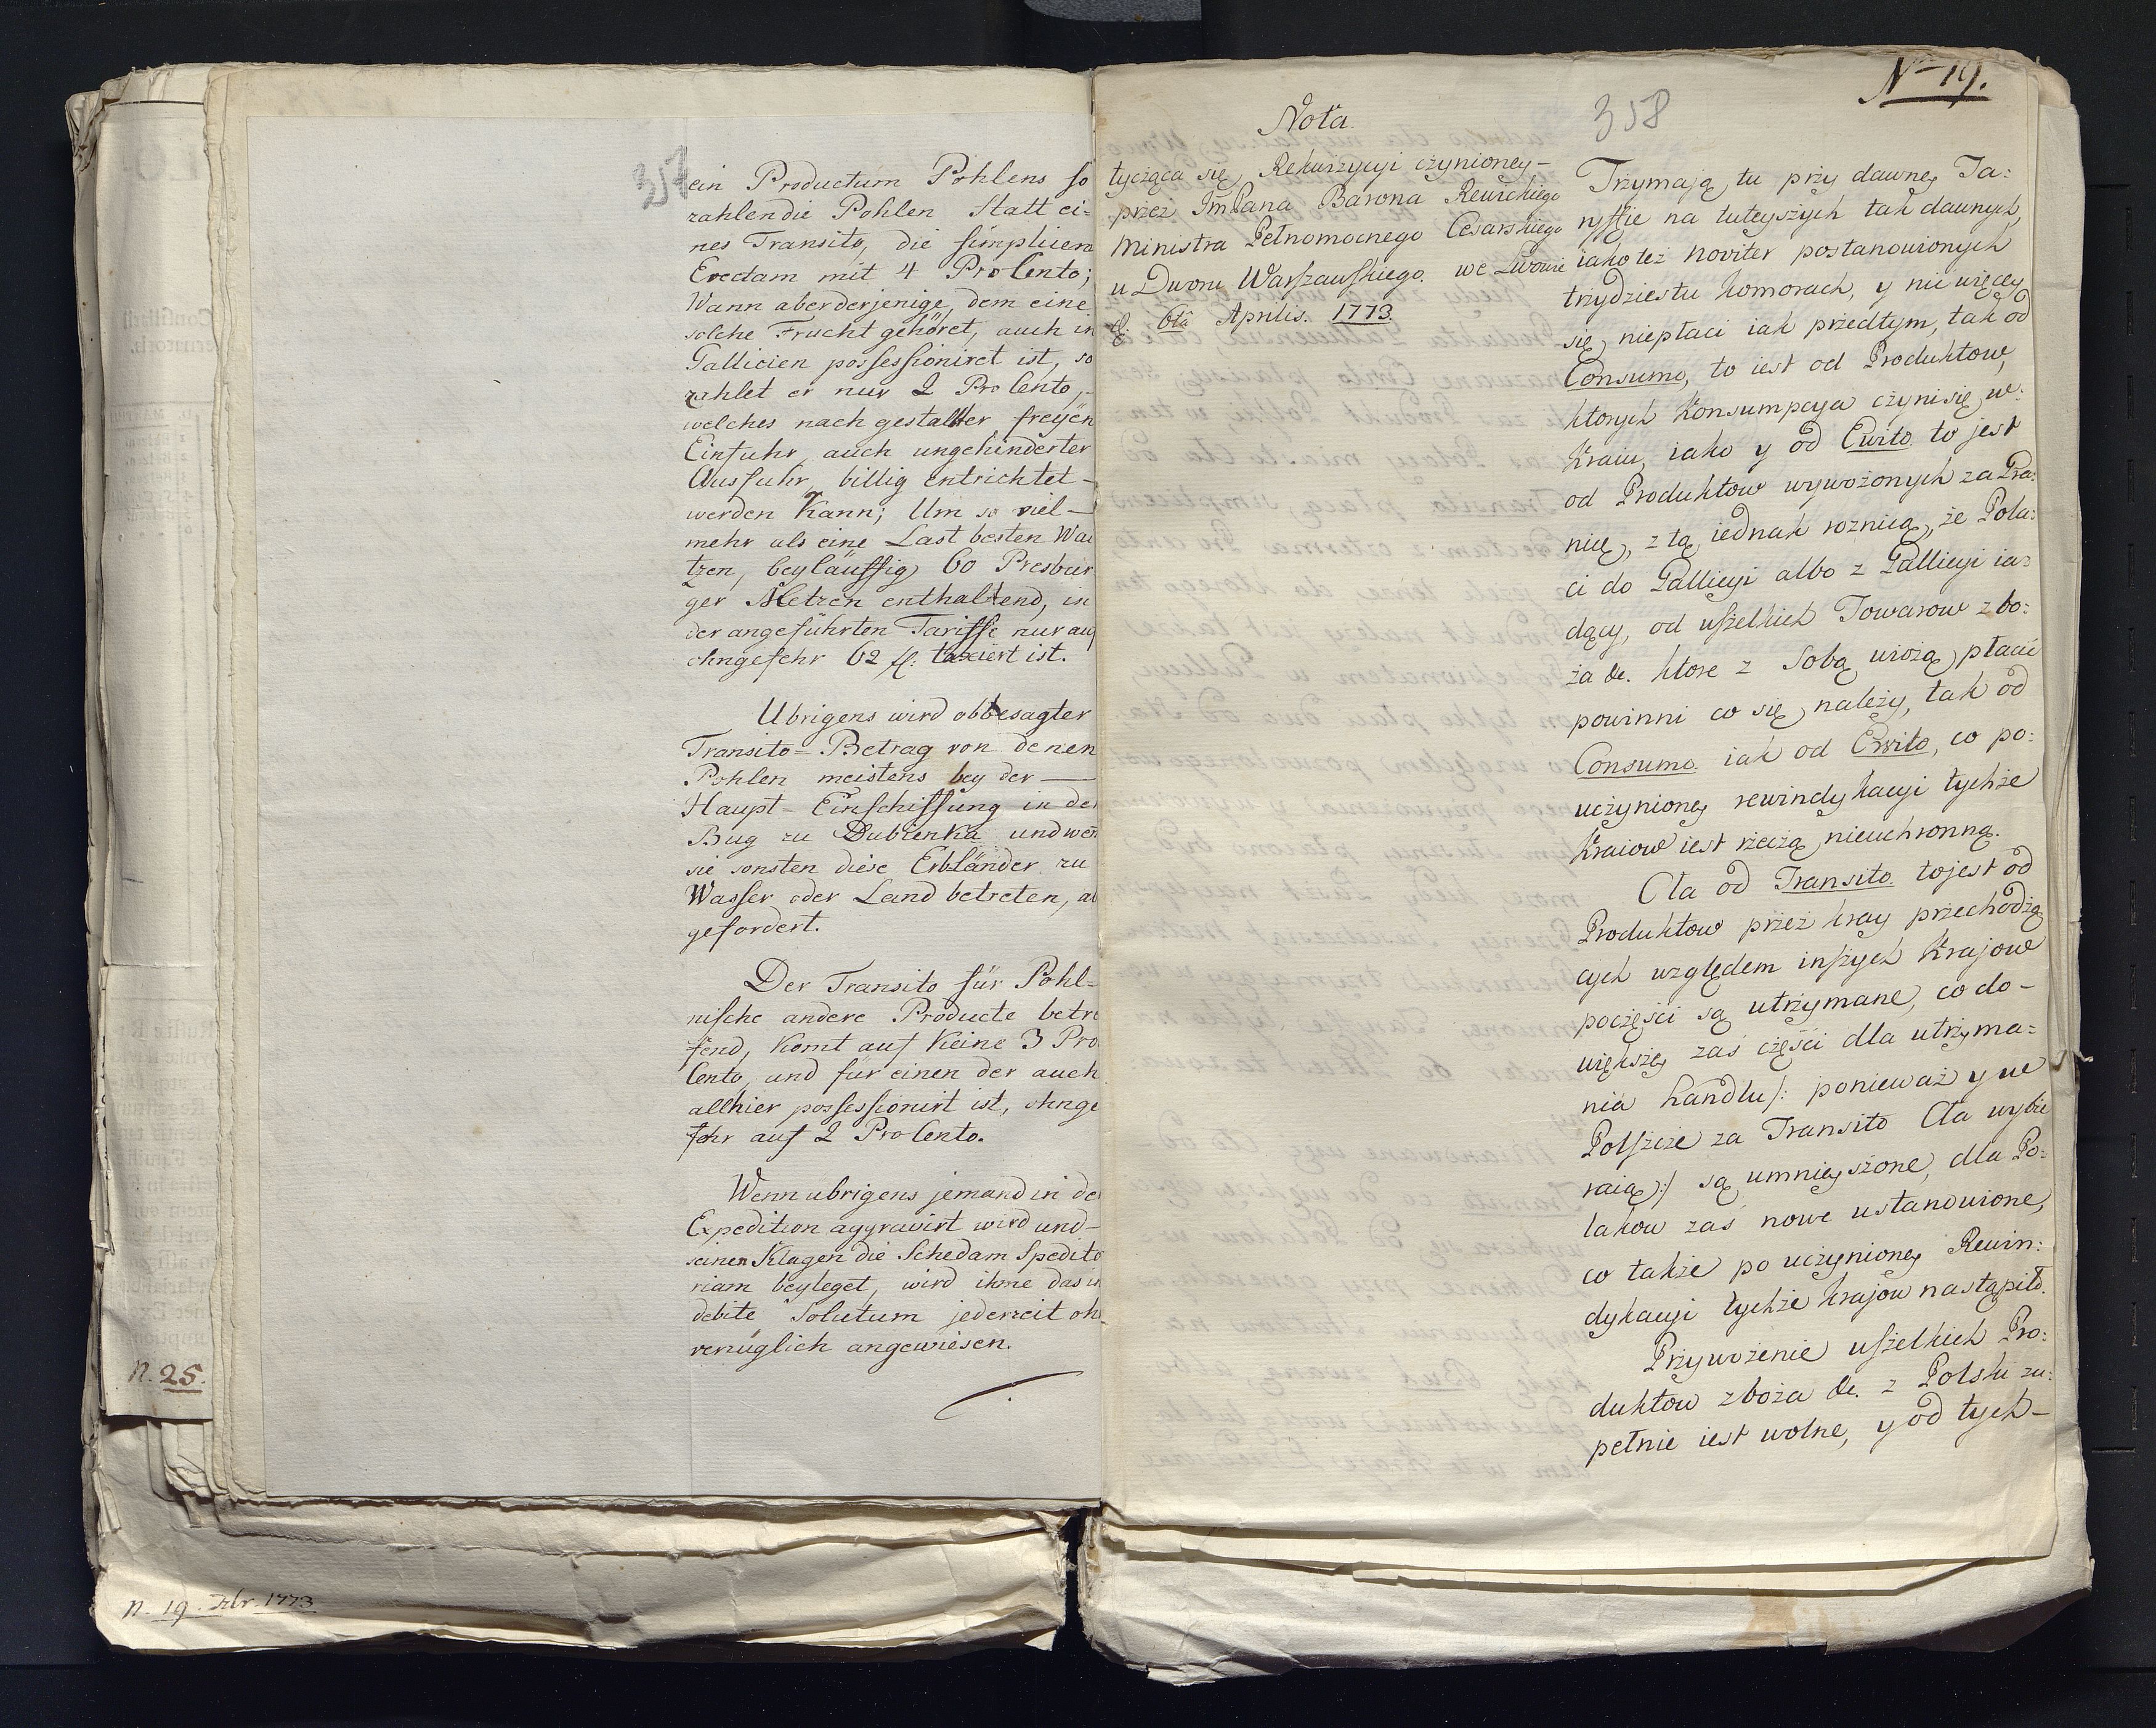 357
ein Productum Pohlens so
zahlen die Pohlen Statt ei-
nes Transito, die simplicem
Evectam mit 4 ProCento;
Wann aber derjenige, dem eine
solche Frucht gehöret, auch in
Gallicien possessioniret ist, so
zahlet er nur 2 ProCento,-
welches nach gestalter freyen
Einfuhr, auch ungehinderter
Ausfuhr, billig entrichtet-
werden Kann; Um so viel-
mehr als eine Last besten Wai
tzen, beyläuffig 60 Presbur
ger Metzen enthaltend, in
der angeführten Tariffe nur auf
ohngefehr 62 fl: taxiert ist.
Ubrigens wird obbesagter
Transito-Betrag von denen
Pohlen meistens bey der —
Haupt-Einschiffung in de
Bug zu Dubienka und wen
sie sonsten diese Erbländer zu
Wasser oder Land betreten, ab
gefordert.
Der Transito für Pohl-
nische andere Producte betre
fend, komt auf Keine 3 Pro
Cento, und für einen der auch
allhier possessionirt ist, ohnge
fehr auf 2 ProCento.
Wenn ubrigens jemand in de
Expedition aggravirt wird und-
seinen Klagen die Schedam Spedito
riam beyleget, wird ihme das in
debite Solutum jederzeit oh
verzüglich angewiesen.
N. 25.
N. 19. Xbr. 1773
Nro 19.
358
Nota.
tycząca się Rekwizycyi czynioney-
przez ImPana Barona Rewickiego
Ministra Pełnomocnego Cesarskiego
u Dworu Warszawskiego. we Lwowie
d. 6ta Aprilis. 1773.
Trzymaią tu przy dawney Ta:
ryffie na tuteyszych tak dawnych,
iako też noviter postanowionych
trzydziestu komorach, y nic więcey
się niepłaci iak przedtym, tak od
Consumo, to iest od Produktow,
ktorych Konsumpcya czyni się w:
Kraiu, iako y od Exvito to jest
od Produktow wywożonych za Gra:
nicę, z tą iednak roznicą, że Pola:
ci do Gallicyi albo z Gallicyi ia:
dący, od wszelkich Towarow zbo:
ża &c. ktore z Sobą wiozą, płacić
powinni co się należy, tak od
Consumo iak od Exvito, co po:
uczynioney rewindykacyi tychże
Kraiow iest rzeczą nieuchronną.
Cła od Transito to jest od
Produktow przez kray przechodzą
cych względem inszych Krajow
poczęści są utrzymane, co do-
większey zaś części dla utrzyma:
nia handlu /: ponieważ y we
Polszcze za Transito Cła wybie
raią :/ są umnieyszone, dla Po:
lakow zaś nowe ustanowione,
co także po uczynioney Rewin:
dykacyi tychże krajow nastąpiło.
Przywożenie wszelkich Pro:
duktow zboża &c. z Polski zu:
pełnie iest wolne, y od tych-